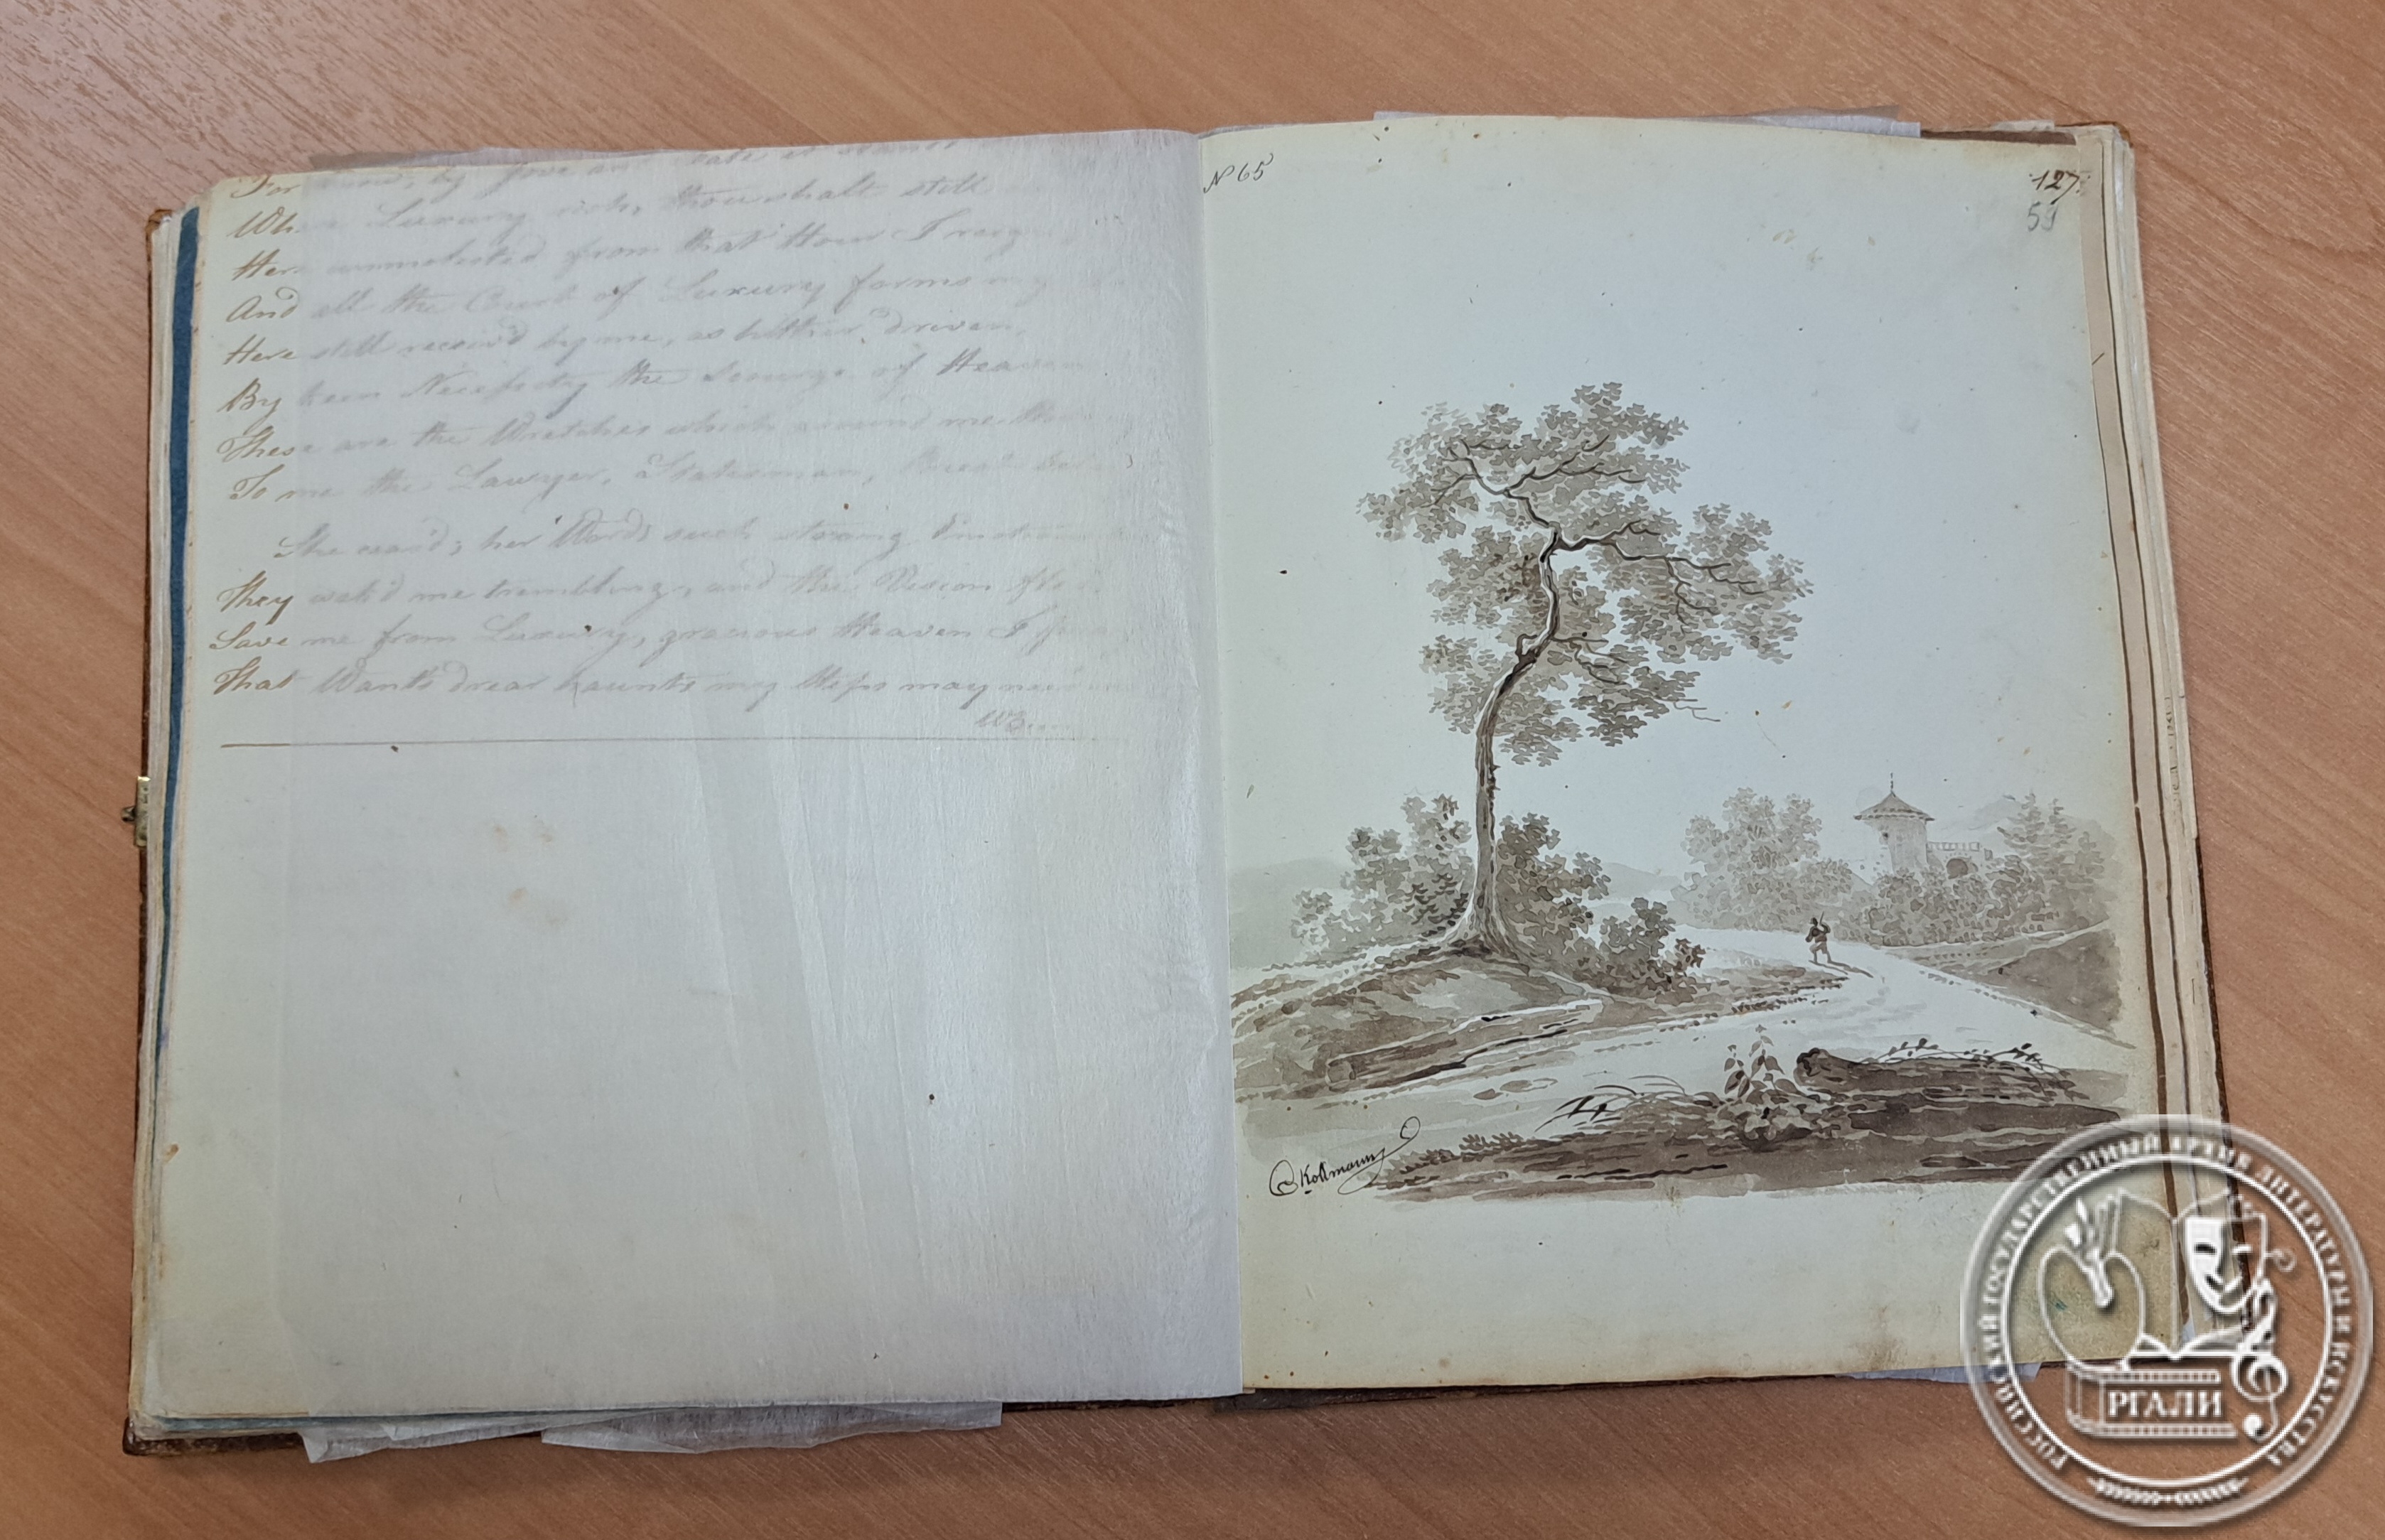 For by Jove and
Where Luxury rich, thou shalt still
Here unmolested from that Hour I reign
And all the Court of Luxury forms my
Here still receiv'd by me, as hither driven,
By keen Necessity the Scourge of Heaven
These are the Wretches which around me
To me the Lawyer, Statesman,
She ceas'd; her Words such strong Emotions
They wak'd me trembling, and the Vision fled
Save me from Luxury, gracious Heaven I
That Wants drear haunts my Steps may never
N 65
127.
59
Kollmann
РОССИЙСКИЙ ГОСУДАРСТВЕННЫЙ АРХИВ ЛИТЕРАТУРЫ И ИСКУССТВА
РГАЛИ